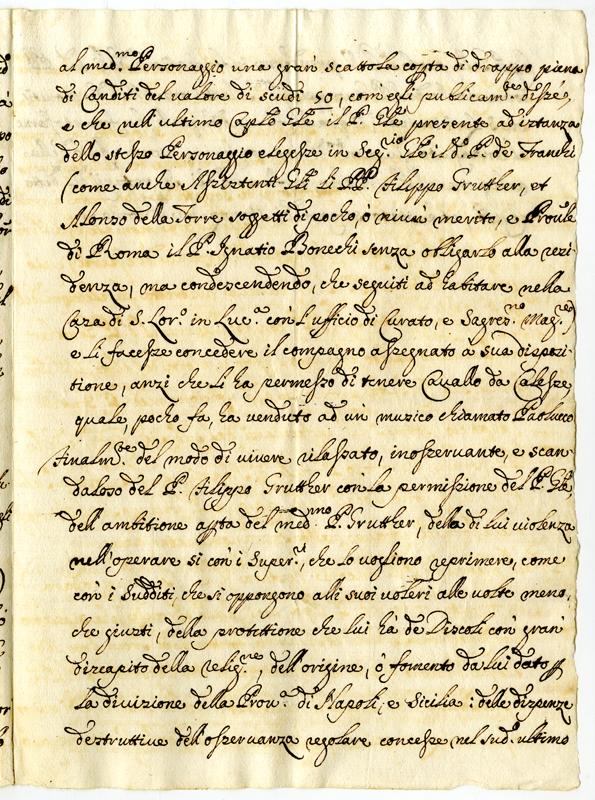 al med.mo Personaggio una gran' scattola cop.ta di drappo piena
di Canditi del valore di scudi 50, com'egli publicam.te disse,
e che nell'ultimo Cap.lo Gñle il P. Gñle presente ad istanza
dello stesso Personaggio elegesse in Seg.rio Gñle il d.o P. de Franchi
(come anche Assistenti Gñli li PP. Filippo Grutther, et
Alonzo della Torre soggetti di pocho, ò niun' merito, e Prouĩle
di Roma il P. Ignatio Bonechi senza obligarlo alla resi-
denza, ma condescendendo, che seguiti ad habitare nella
Casa di S. Lor.o in Luc.a con l'ufficio di Curato, e Sagres.no Mag.re)
e li facesse concedere il compagno assegnato à sua disposi-
tione, anzi che li ha permesso di tenere Cavallo da Calesse
quale, pocho fa, ha venduto ad un' musico chiamato Paoluccio
Finalm.te del modo di vivere rilassato, inosservante, e scan-
daloso del P. Filippo Grutther con la permissione del P. Gñle,
dell'ambitione app.ta del med.mo P. Grutther, della di lui violenza
nell'operare si con' i Super.ri, che lo vogliono reprimere, come
con' i Sudditi, che si oppongono alli suoi voleri alle volte meno,
che giusti, della protettione che lui hà de Discoli con' gran'
discapito della relig.ne, dell'origine, ò fomento da lui dato p
la divizione della Prou.a di Napoli, e Sicilia: delle dispenze
destruttive dell'osservanza regolare concesse nel sud.o ultimo